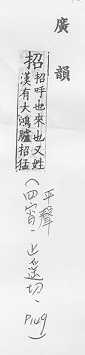 廣韻
招招呼也來也又姓
漢有大鴻臚招猛
(平聲
四宵、止遥切、
P149)